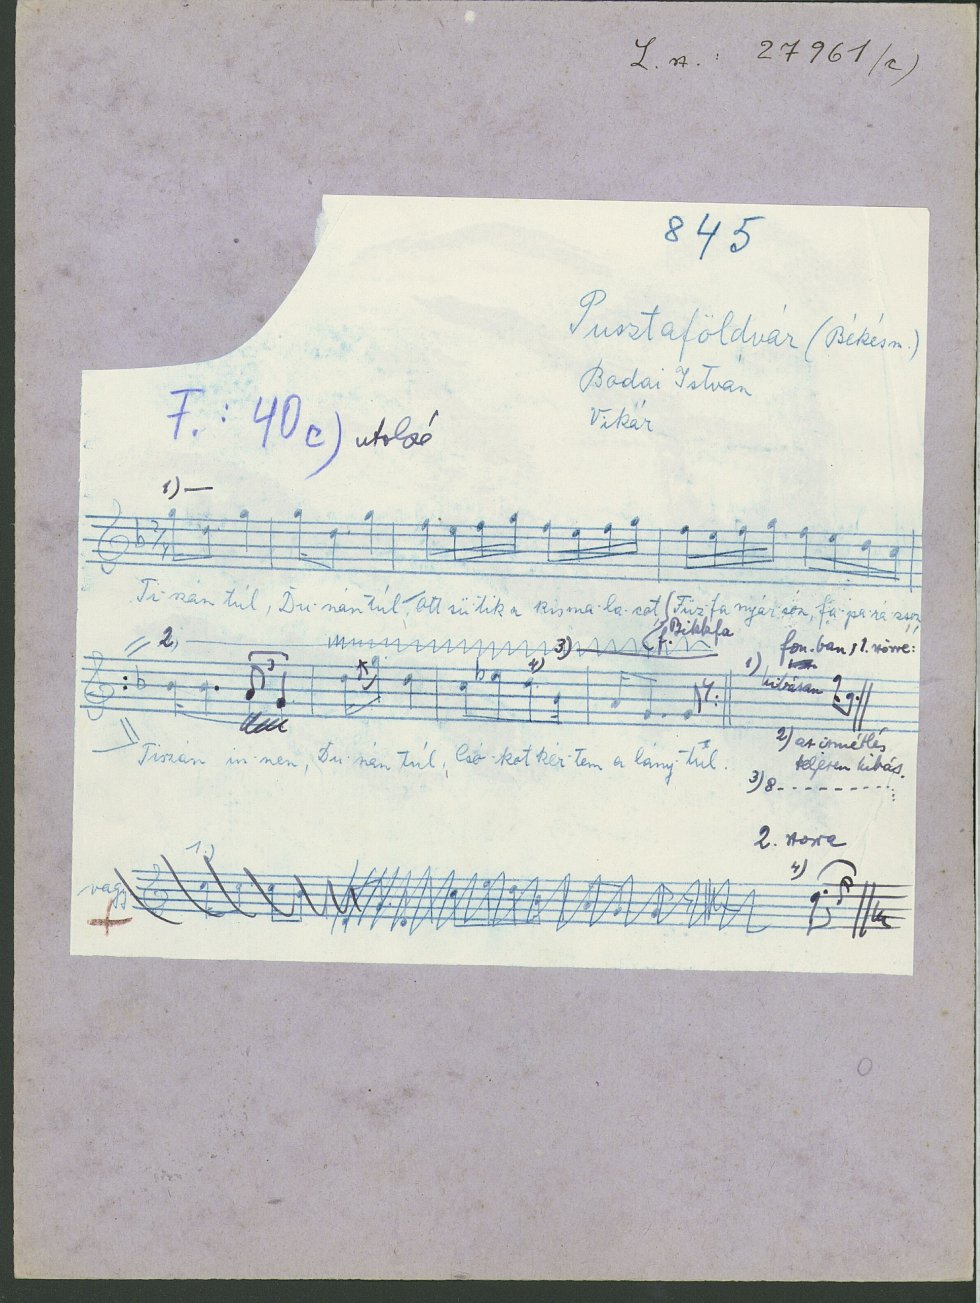 L. sz.: 27961/c)
845
Pusztaföldvár (Békésm.)
Bodai István
Vikár
F.: 40c) utolsó
1)
Ti-szán túl, Du-nán túl, Ott sütik a kisma-la-cot (Fűzfa nyár-son, fa-pa-rá-zson,
Bikkfa
2)
3)
4)
1) hibásan
Tiszán in-nen, Du-nán túl, Csó-kot kér-tem a lány-tul.
2) az ismétlés
teljesen hibás.
3) 8
2.
1.)
4)
vagy